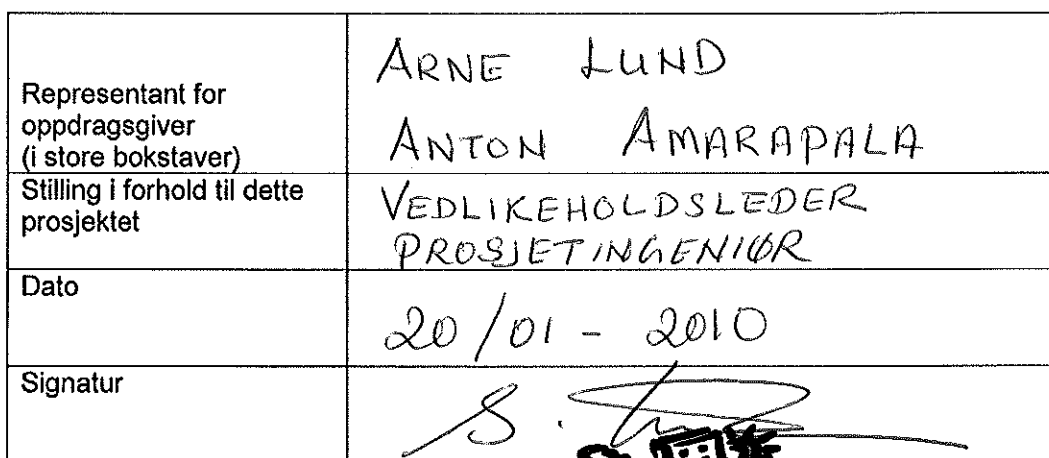 Representant for
oppdragsgiver
(i store bokstaver)
ARNE LUND
ANTON AMARAPALA
Stilling i forhold til dette
prosjektet
VEDLIKEHOLDSLEDER
PROSJETINGENIØR
Dato
20/01 - 2010
Signatur